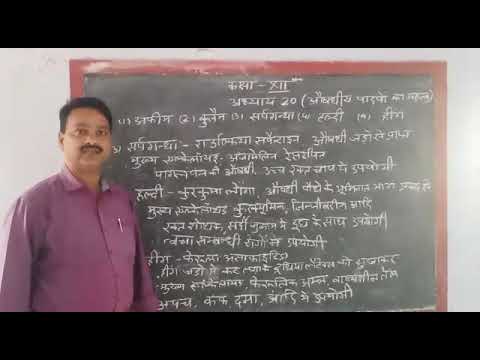 कक्षा - XII
अध्याय 20 (औषधीय पादपों का महत्व)
(1) अफीम (2) कुनैन (3) सर्पगन्धा (4) हल्दी (5) हींग
3) सर्पगन्धा - राउल्फिया सर्पेन्टाइना औषधी जड़ों से प्राप्त
मुख्य एल्केलॉयड - अजमेलिन रेसरपिन
पागलपन की औषधी, उच्च रक्त चाप में उपयोगी
हल्दी - कुरकुमा लोंगा, औषधी पौधे के भूमिगत भाग
मुख्य एल्केलॉयड कुरकुमिन, जिन्जीबरीन आदि
रक्त शोधक, सर्दी जुकाम में दूध के साथ उपयोगी
त्वचा सम्बन्धी रोगों में उपयोगी
हींग - फेरुला असाफोइटिडा
हींग जड़ों में कट लगाके दूधिया लैटेक्स को सुखाकर
मुख्य एल्केलॉयड, फेरुलिक अम्ल, वाष्पशील तेल
अपच, कफ दमा, आदि में उपयोगी